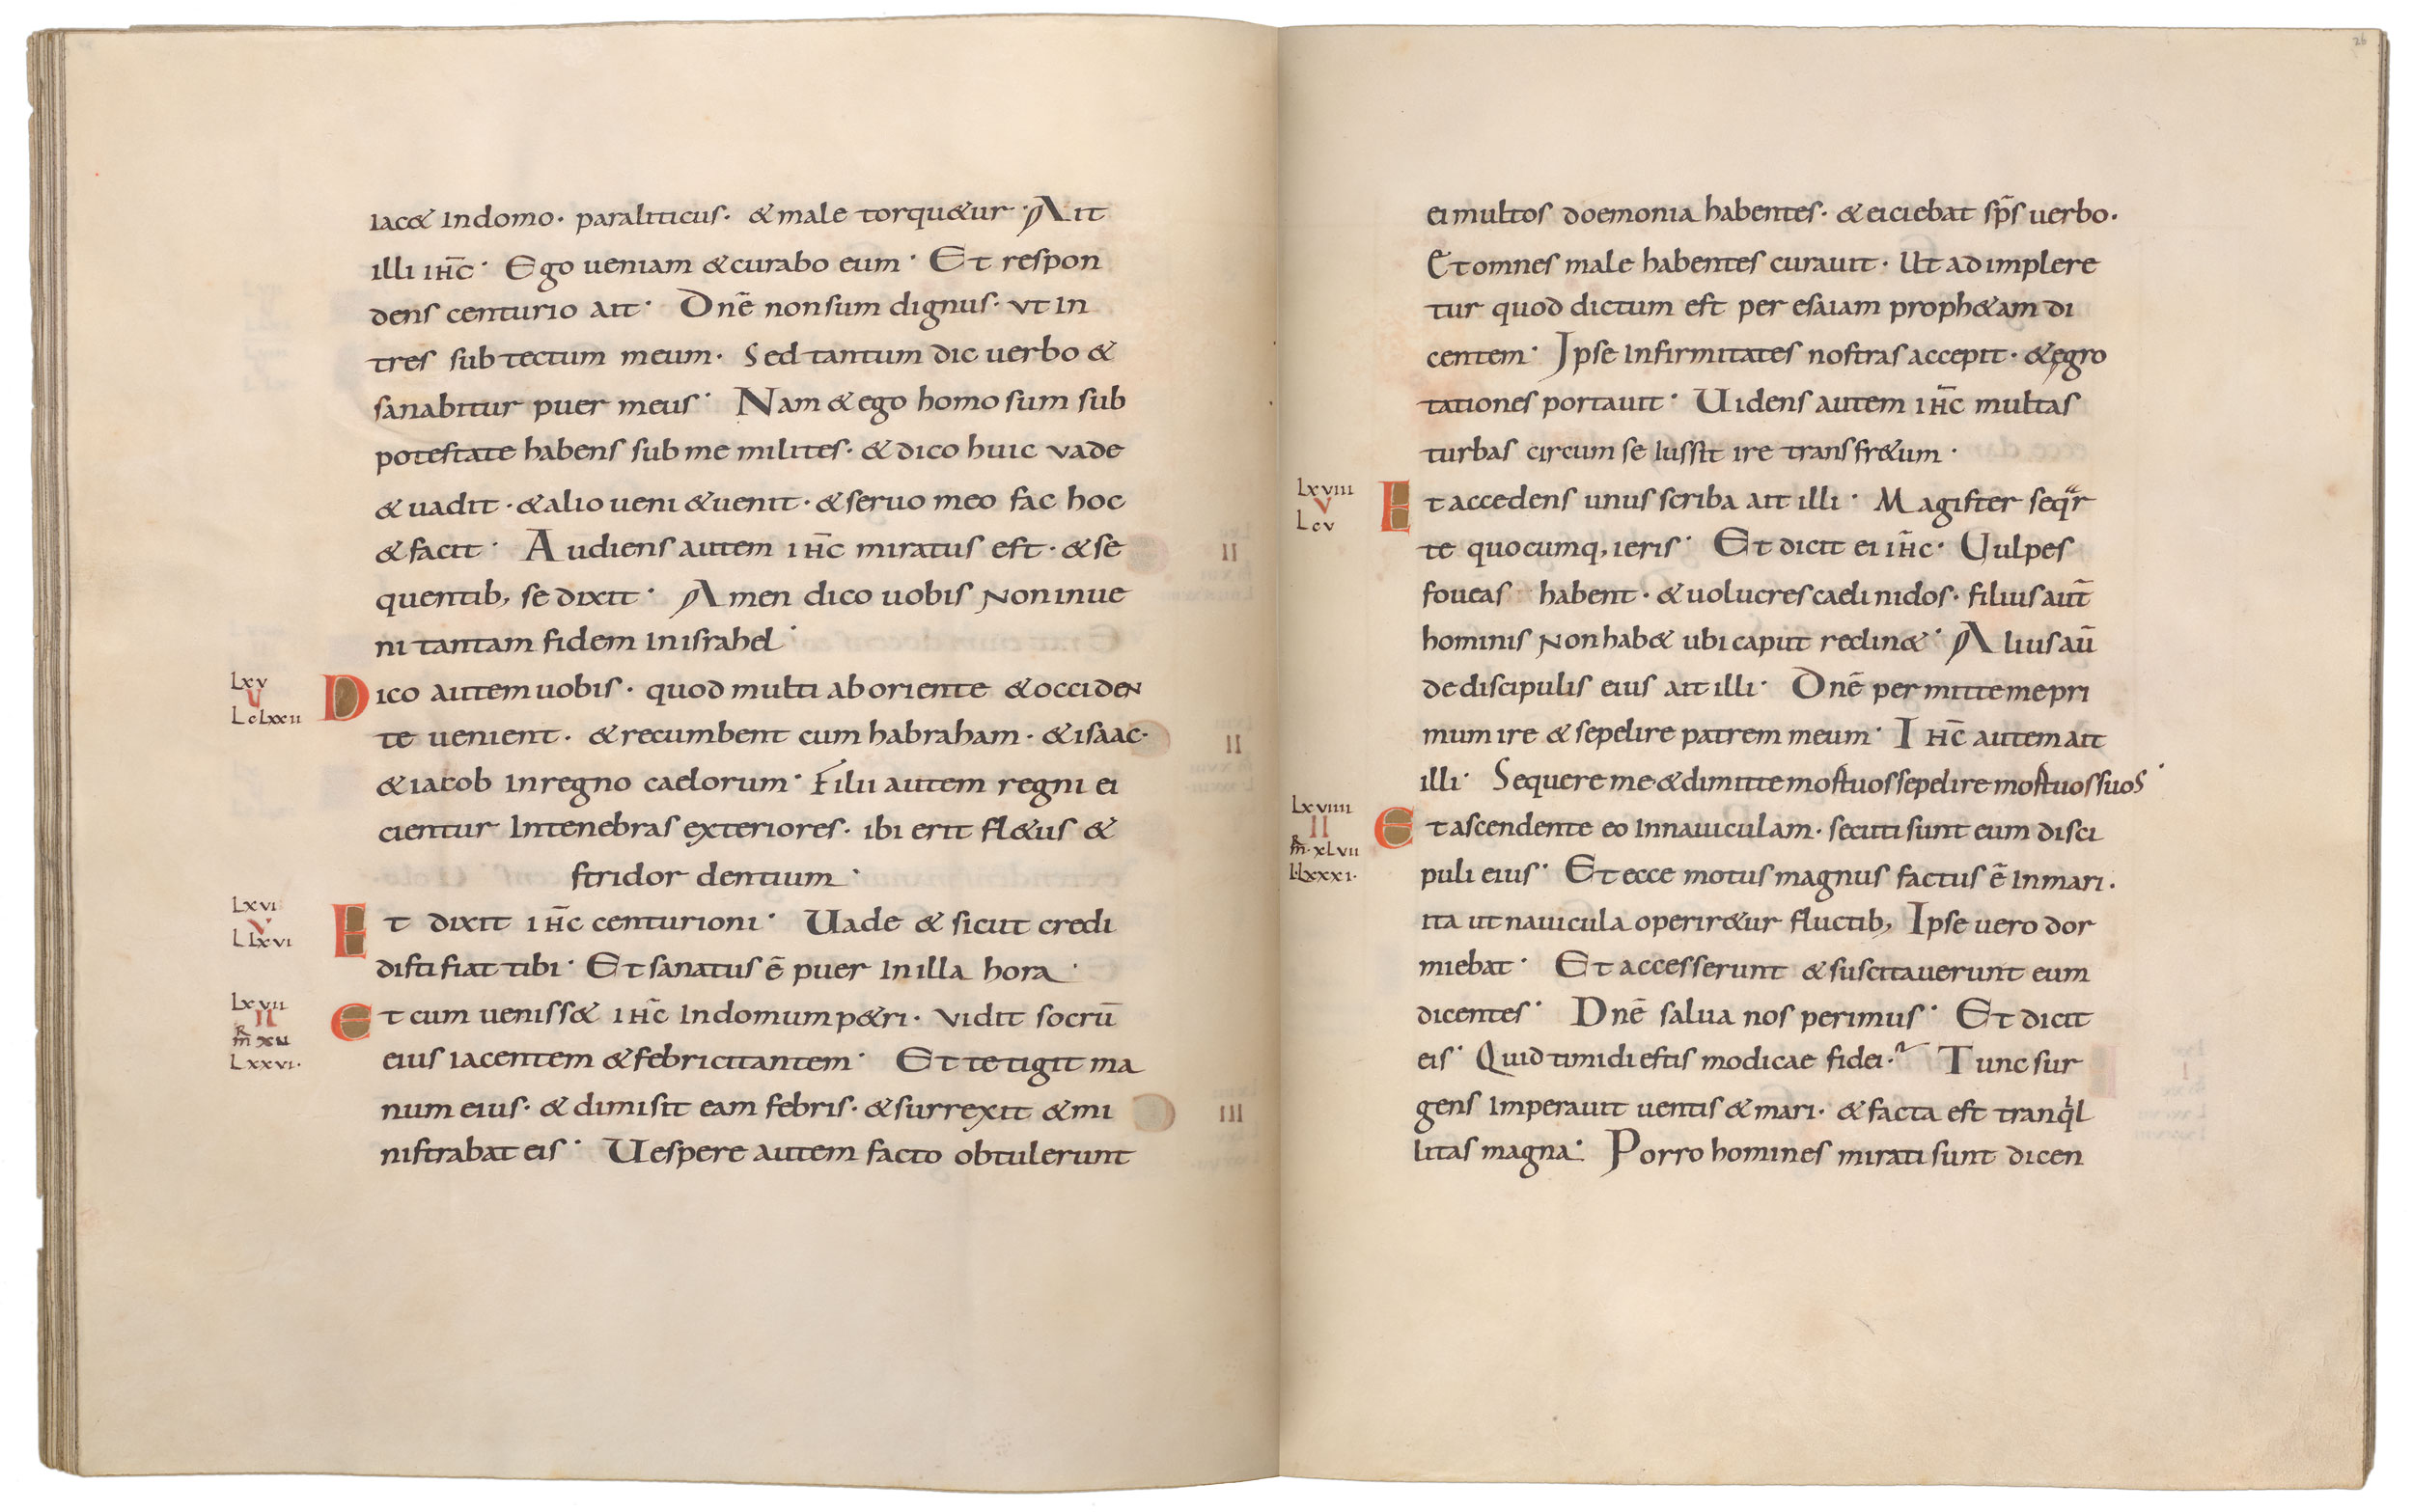 iac& Indomo. paraliticus. & male torqu&ur. Ait
illi ihc̄. Ego ueniam & curabo eum. Et respon
dens centurio ait. Dnē non sum dignus. vt in
tres sub tectum meum. Sed tantum dic uerbo &
sanabitur puer meus. Nam & ego homo sum sub
potestate habens sub me milites. & dico huic vade
& uadit. & alio ueni & uenit. & seruo meo fac hoc
& facit. Audiens autem ihc̄ miratus est. & se
quentib, se dixit. Amen dico uobis Non inue
ni tantam fidem in israhel.
Lxv
V
LcLxxii
Dico autem uobis. quod multi ab oriente & occiden
te uenient. & recumbent cum habraham. & isaac.
& iacob In regno caelorum. Filii autem regni ei
cientur Intenebras exteriores. ibi erit fl&us &
stridor dentium.
Lxvi
V
L Lxvi
Et dixit ihc̄ centurioni. Uade & sicut credi
disti fiat tibi. Et sanatus ē puer In illa hora.
Lxvii
II
R
m̄ xu
Lxxvi.
Et cum ueniss& ihc̄ Indomum p&ri. vidit socrū
eius iacentem & febricitantem. Et tetigit ma
num eius. & dimisit eam febris. & surrexit & mi
nistrabat eis. Uespere autem facto obtulerunt
26
ei multos doemonia habentes. & eiciebat sp̄s uerbo.
Et omnes male habentes curauit. Ut adimplere
tur quod dictum est per esaiam proph&am di
centem. Ipse Infirmitates nostras accepit. & ęgro
tationes portauit. Uidens autem ihc̄ multas
turbas circum se Iussit ire trans fr&um.
Lxviii
V
Lcv
Et accedens unus scriba ait illi. Magister seq̄r
te quocumq, ieris. Et dicit ei ihc̄. Uulpes
foueas habent. & uolucres caeli nidos. filius aut̄
hominis Non hab& ubi caput reclin&. Alius aū
de discipulis eius ait illi. Dnē permitte me pri
mum ire & sepelire patrem meum. Ihc̄ autem ait
illi. Sequere me & dimitte mortuos sepelire mortuos suos.
Lxviiii
II
R
m̄. xLvii
LLxxxi.
Et ascendente eo In nauiculam. secuti sunt eum disci
puli eius. Et ecce motus magnus factus ē In mari.
ita ut nauicula operir&ur fluctib, Ipse uero dor
miebat. Et accesserunt & suscitauerunt eum
dicentes. Dnē salua nos perimus. Et dicit
eis. Quid timidi estis modicae fidei. Tunc sur
gens Imperauit uentis & mari. & facta est tranq̇l
litas magna. Porro homines mirati sunt dicen